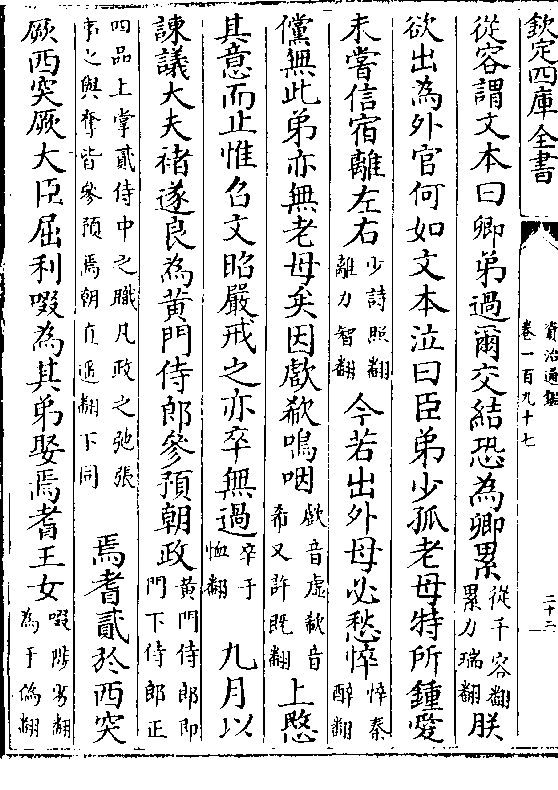 欽定四庫全書
資治通鑑
卷一百九十七
二十二
從容謂文本曰卿弟過爾交結恐為卿累從千容翻累力瑞翻朕
欲出為外官何如文本泣曰臣弟少孤老母特所鍾愛
未嘗信宿離左右少詩照翻離力智翻今若出外母必愁悴悴秦醉翻
儻無此弟亦無老母矣因歔欷嗚咽歔音虛欷音希又許既翻上愍
其意而止惟召文昭嚴戒之亦卒無過卒子恤翻九月以
諫議大夫褚遂良為黃門侍郎參預朝政黃門侍郎即門下侍郎正
四品上掌貳侍中之職凡政之弛張事之與奪皆參預焉朝直遙翻下同焉耆貳於西突
厥西突厥大臣屈利啜為其弟娶焉耆王女啜陟劣翻為于偽翻